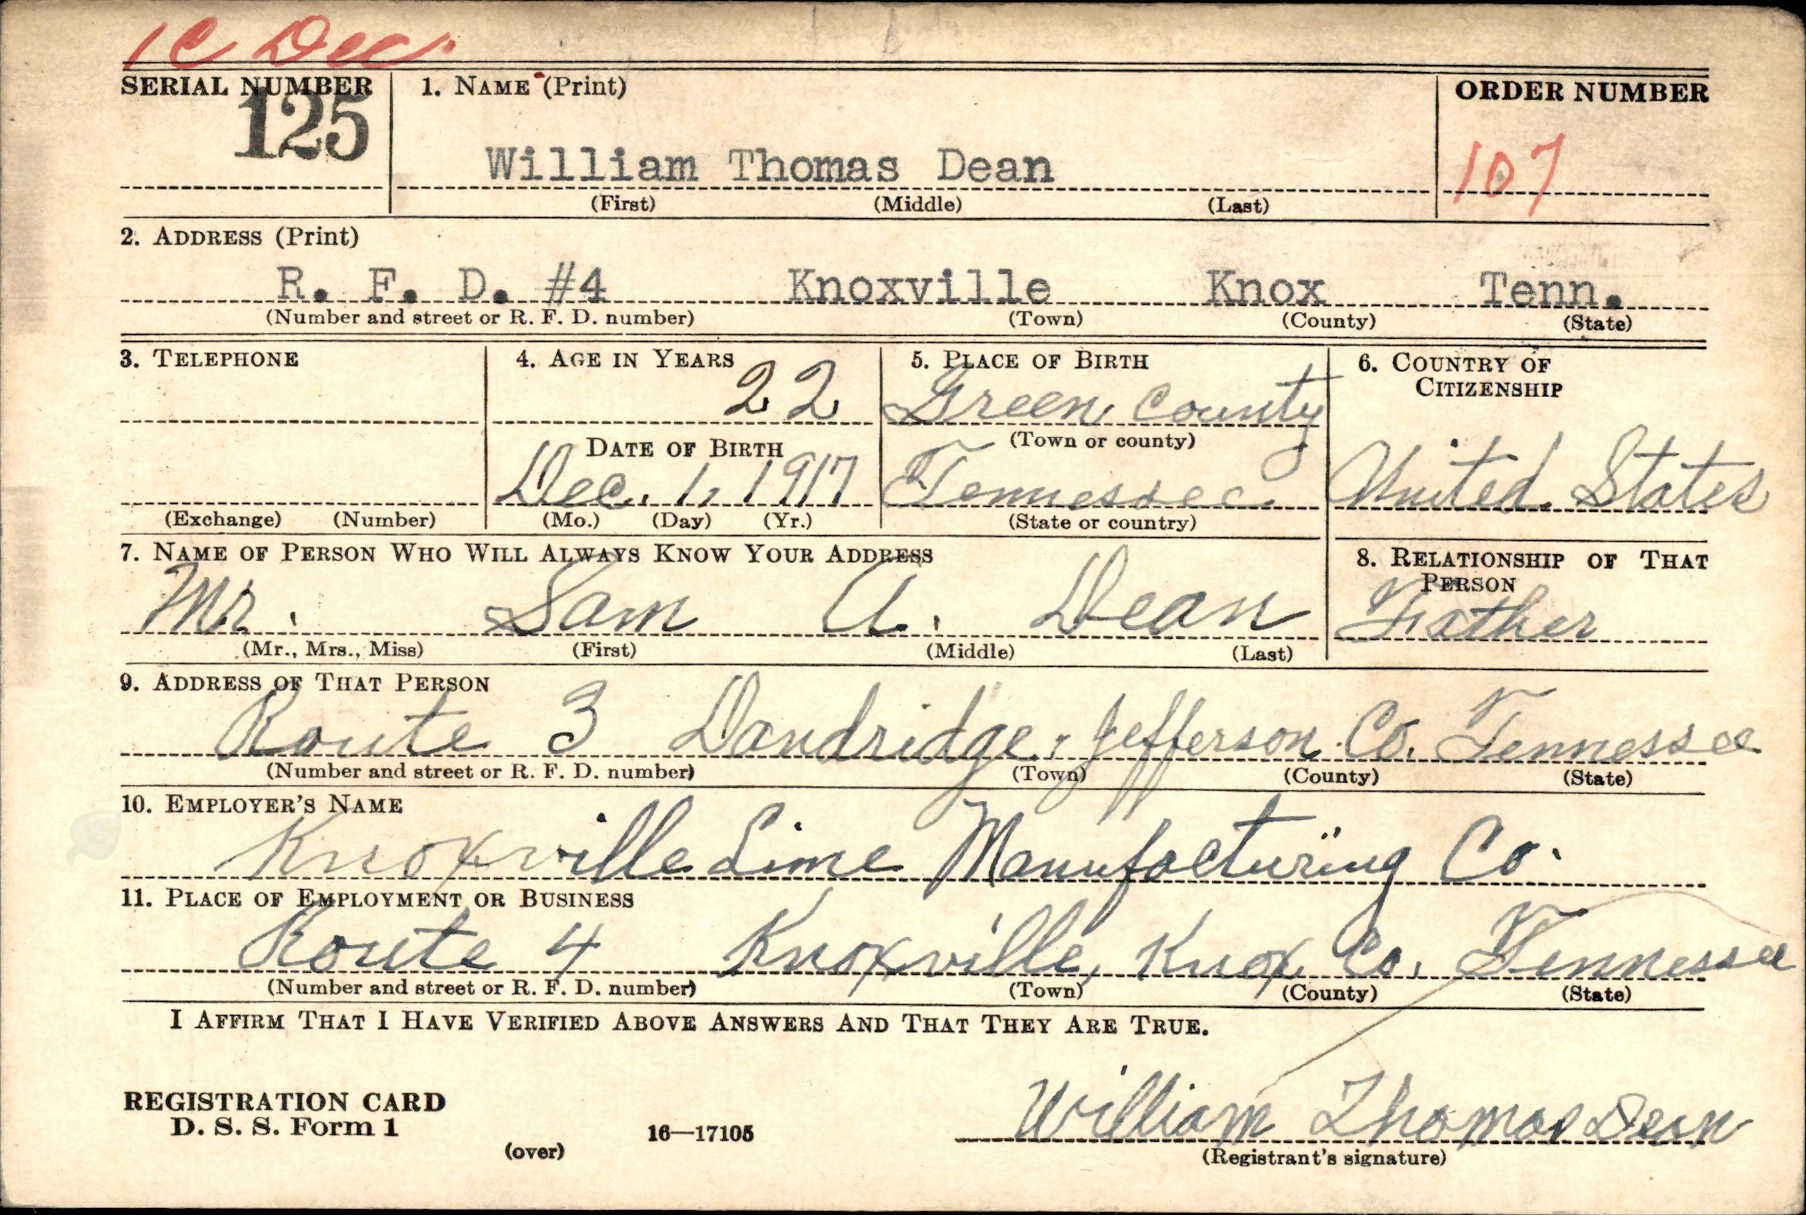 1C Dec.
SERIAL NUMBER 1. NAME (Print) ORDER NUMBER
125 William Thomas Dean 107
(First) (Middle) (Last)
2. ADDRESS (Print)
R. F. D. #4 Knoxville Knox Tenn.
(Number and street or R. F. D. number) (Town) (County) (State)
3. TELEPHONE 4. AGE IN YEARS 5. PLACE OF BIRTH 6. COUNTRY OF
CITIZENSHIP
22 Green County
DATE OF BIRTH (Town or county)
Dec. 1, 1917 Tennessee United States
(Exchange) (Number) (Mo.) (Day) (Yr.) (State or country)
7. NAME OF PERSON WHO WILL ALWAYS KNOW YOUR ADDRESS 8. RELATIONSHIP OF THAT
PERSON
Mr. Sam A. Dean Father
(Mr., Mrs., Miss) (First) (Middle) (Last)
9. ADDRESS OF THAT PERSON
Route 3 Dandridge, Jefferson Co. Tennessee
(Number and street or R. F. D. number) (Town) (County) (State)
10. EMPLOYER'S NAME
Knoxville Lime Manufacturing Co.
11. PLACE OF EMPLOYMENT OR BUSINESS
Route 4 Knoxville, Knox Co. Tennessee
(Number and street or R. F. D. number) (Town) (County) (State)
I AFFIRM THAT I HAVE VERIFIED ABOVE ANSWERS AND THAT THEY ARE TRUE.
REGISTRATION CARD
D. S. S. Form 1 William Thomas Dean
(over) 16—17105 (Registrant's signature)